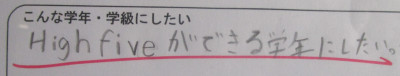 こんな学年・学級にしたい
High fiveができる学年にしたいっ。